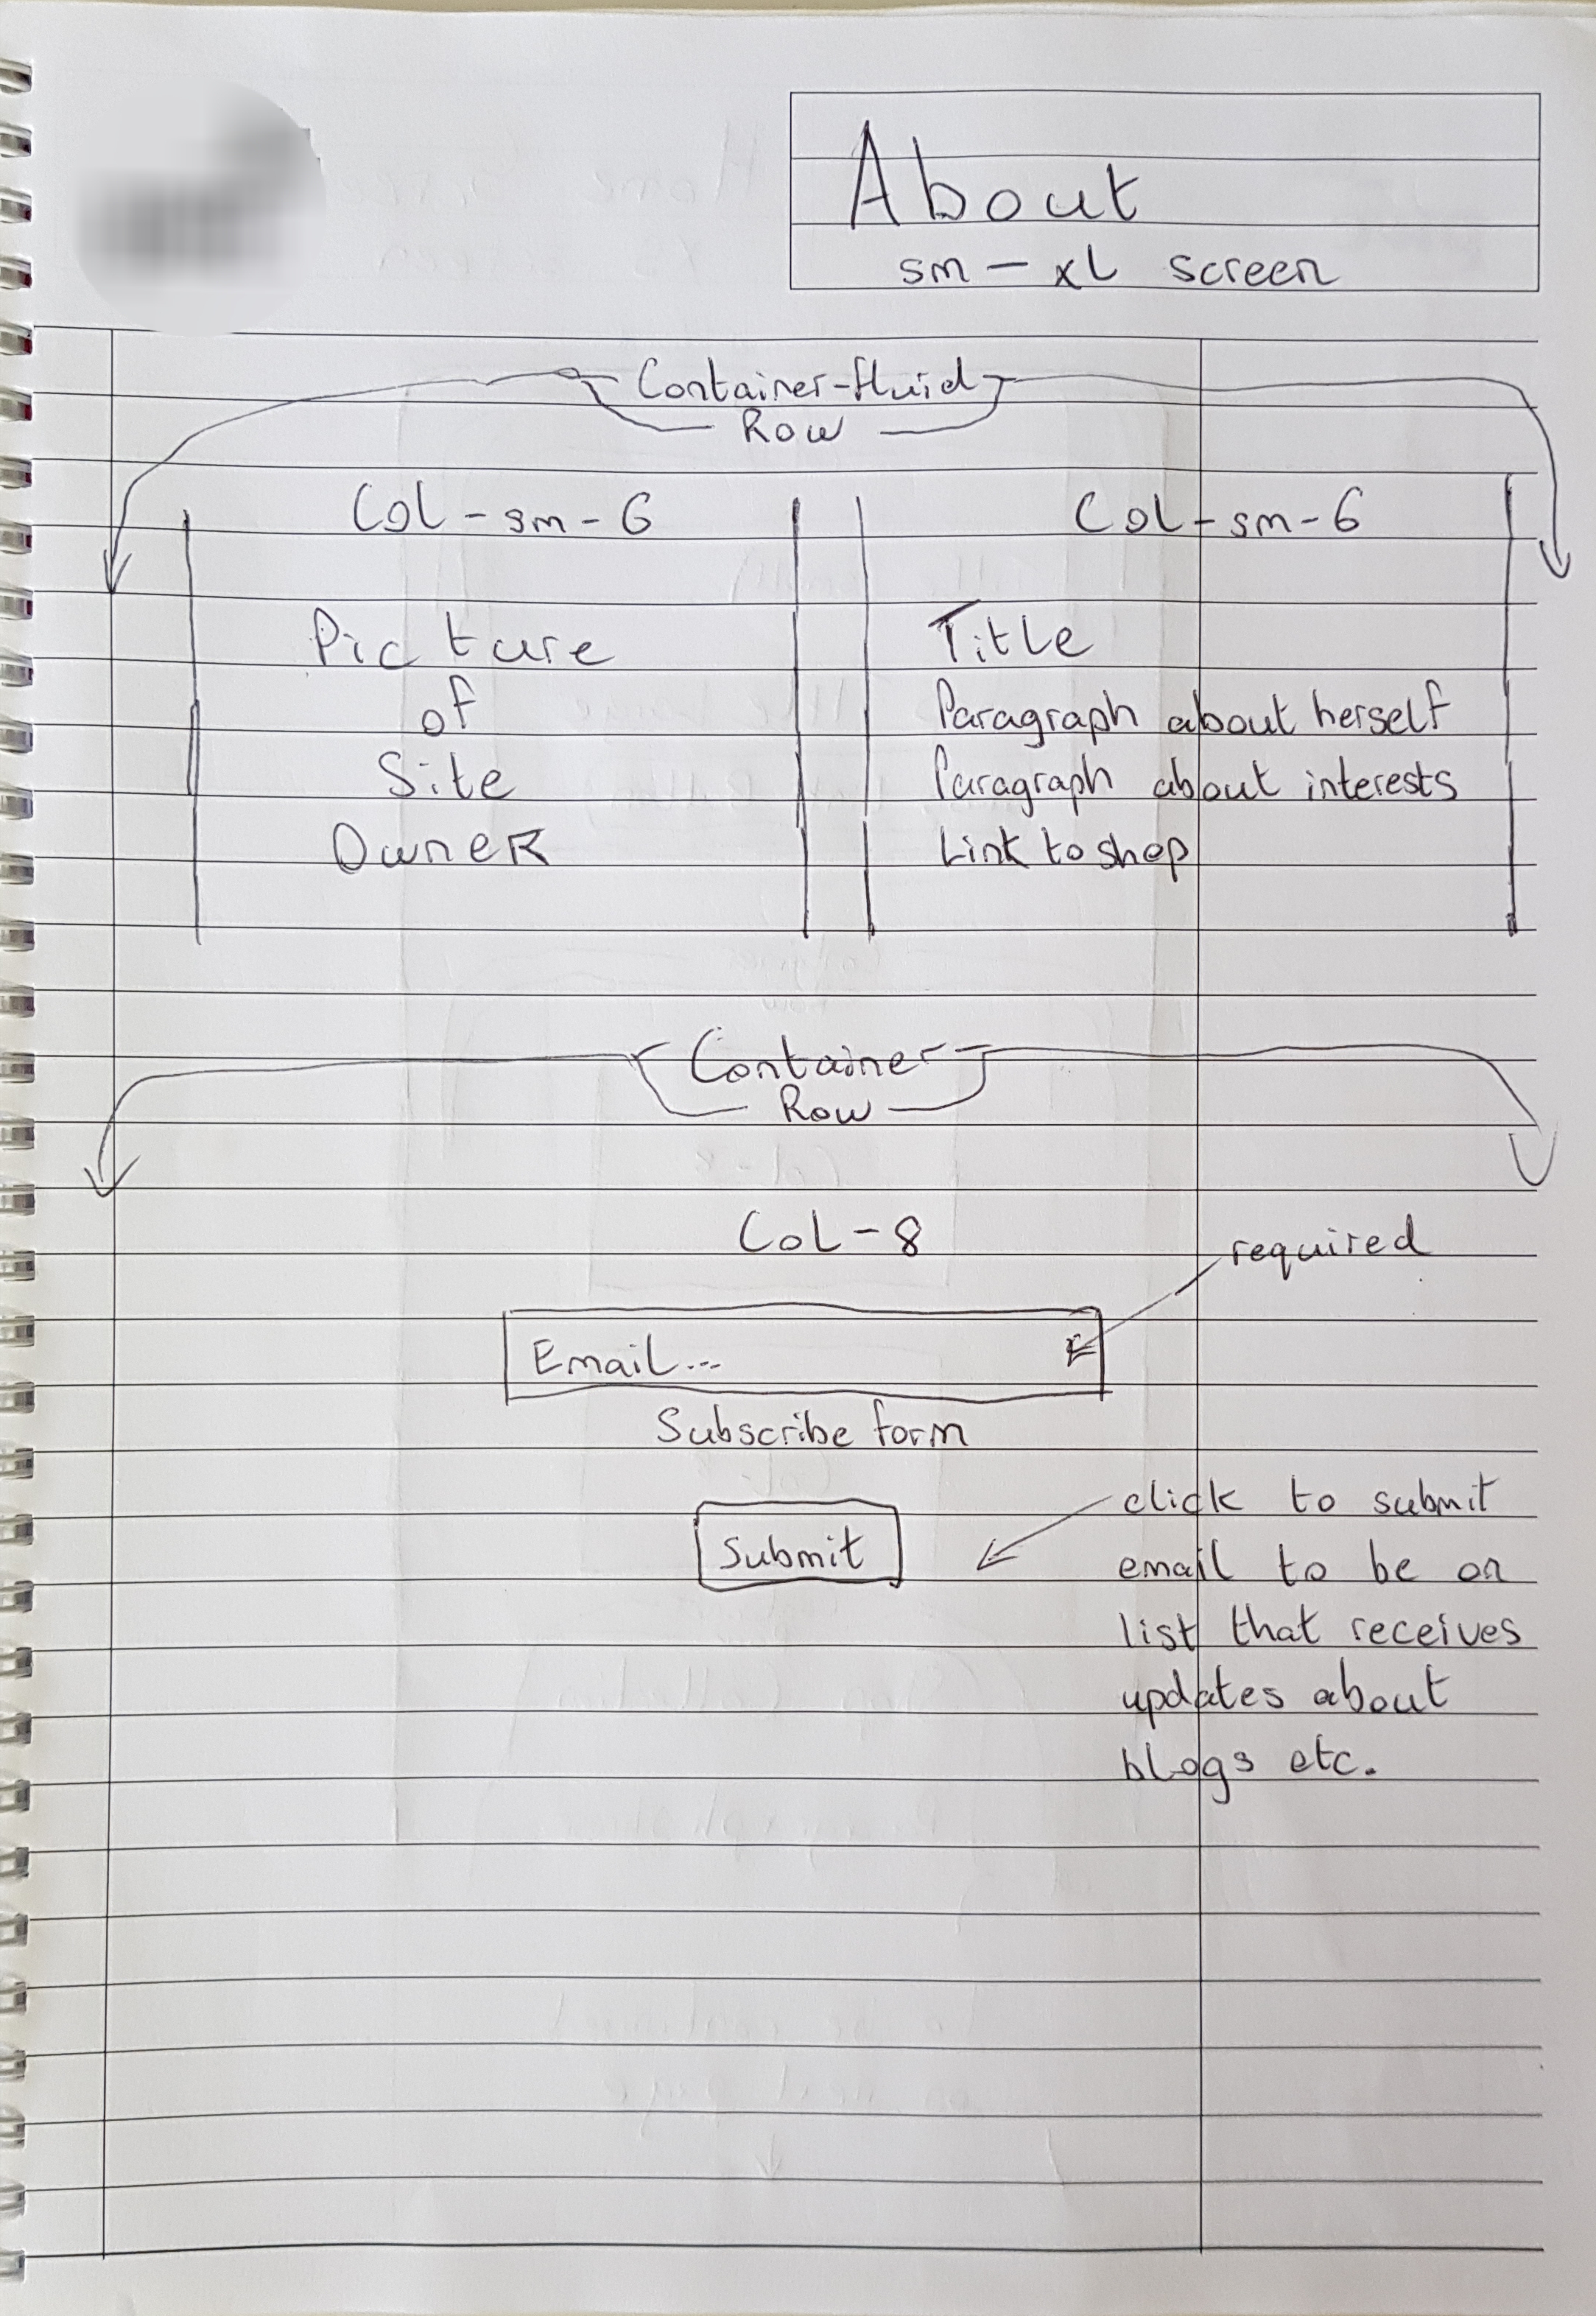 About
sm - xL screen
Container-fluid
Row
Col - sm - 6
Col - sm - 6
Picture
of
Site
Owner
Title
Paragraph about herself
Paragraph about interests
Link to shop
Container
Row
CoL - 8
required
Email...
Subscribe form
Submit
click to submit
email to be on
list that receives
updates about
blogs etc.